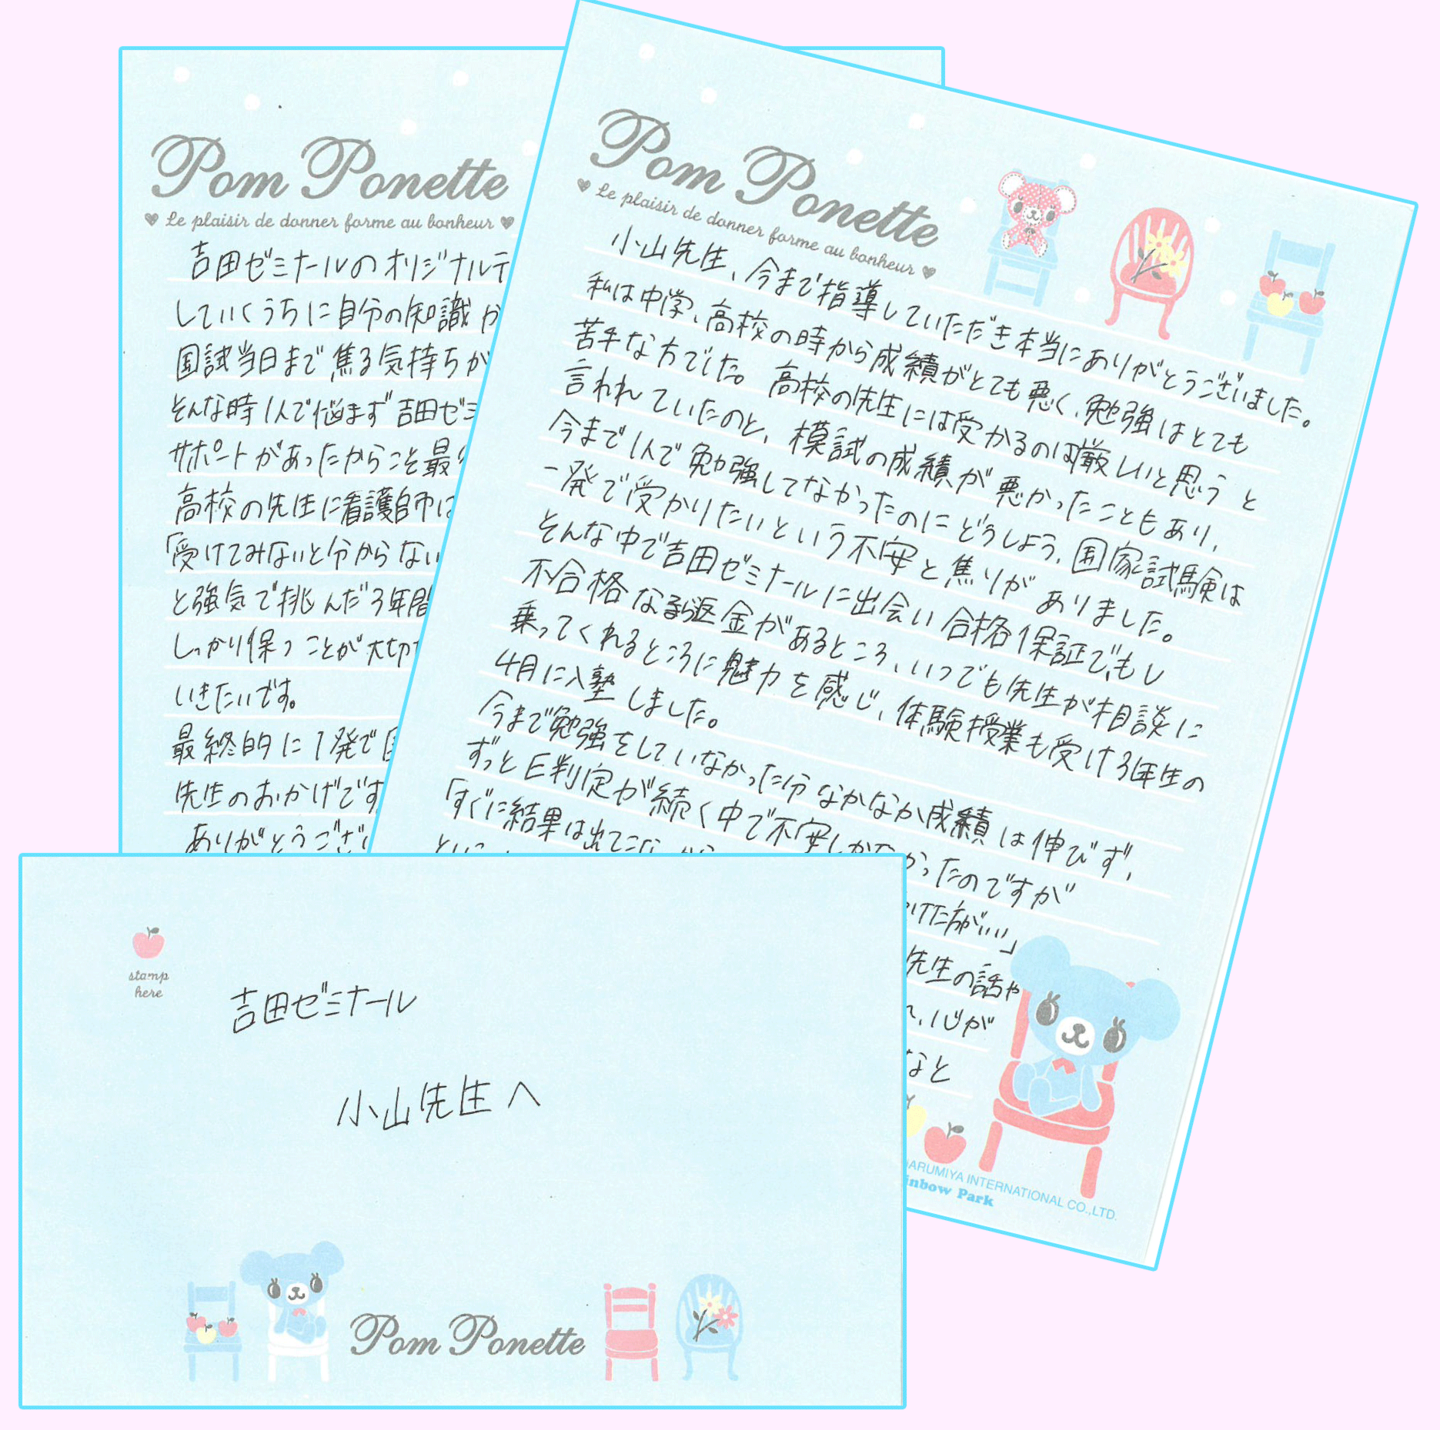 Pom Ponette
Le plaisir de donner forme au bonheur
吉田ゼミナールのオリジナルテ
していくうちに自分の知識が
国試当日まで焦る気持ちが
そんな時1人で悩まず吉田ゼミ
サポートがあったからこそ最
高校の先生に看護師は
「受けてみないと分からない
と強気で挑んだ3年間
しっかり保つことが大切
いきたいです。
最終的に1発で国
先生のおかげです
ありがとうござい
Pom Ponette
Le plaisir de donner forme au bonheur
小山先生、今まで指導していただき本当にありがとうございました。
私は中学、高校の時から成績がとても悪く、勉強はとても
苦手な方でした。高校の先生には受かるのは厳しいと思うと
言われていたのと、模試の成績が悪かったこともあり、
今まで1人で勉強してなかったのにどうしよう、国家試験は
一発で受かりたいという不安と焦りがありました。
そんな中で吉田ゼミナールに出会い合格保証でもし
不合格なら返金があるところ、いつでも先生が相談に
乗ってくれるところに魅力を感じ、体験授業も受け3年生の
4月に入塾しました。
今まで勉強をしていなかった分なかなか成績は伸びず、
ずっとE判定が続く中で不安しかなかったのですが
「すぐに結果は出てこない
けた方がいい」
先生の話や
、心が
なと
DARUMIYA INTERNATIONAL CO.,LTD.
nbow Park
stamp
here
吉田ゼミナール
小山先生へ
Pom Ponette